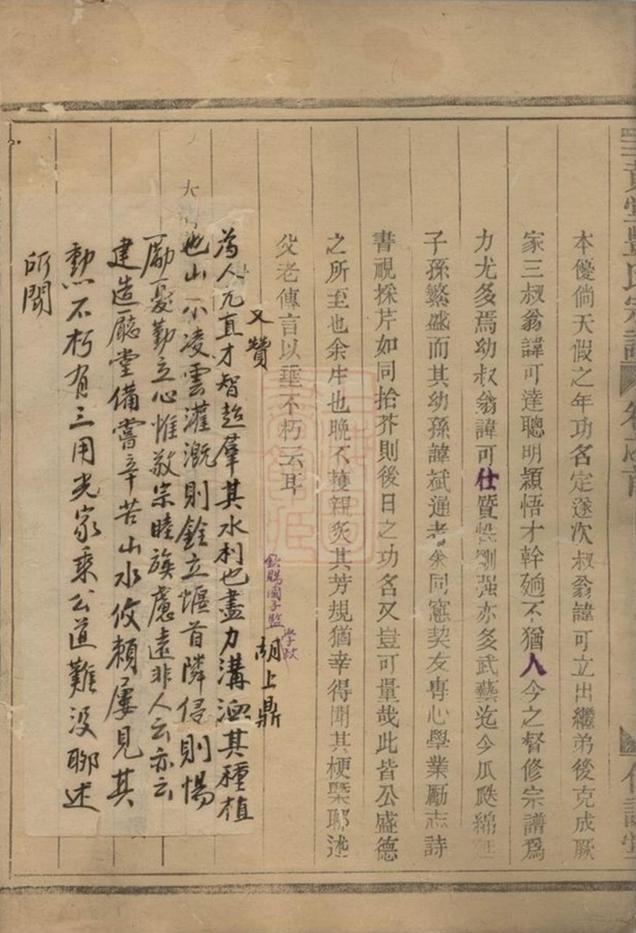 本優倘天假之年功名定遂次叔翁諱可立出繼弟後克成厥
家三叔翁諱可達聰明穎悟才幹迥不猶人今之督修宗譜爲
力尤多焉幼叔翁諱可仕賢性剛强亦多武藝迄今瓜瓞綿
子孫繁盛而其幼孫諱斌通者余同窓契友專心學業勵志詩
書視採芹如同拾芥則後日之功名又豈可量哉此皆公盛德
之所至也余生也晚不獲親炙其芳規猶幸得聞其梗槩聊述
父老傳言以垂不朽云耳
欽賜國子監學政
胡上鼎
又贊
為人亢直才智超羣其水利也盡力溝洫其種植
也山不凌雲灌溉則銓立堰首隣侵則惕
勵憂勤立心惟敬宗睦族慮遠非人云亦云
建造廳堂備嘗辛苦山水攸賴屢見其
勲不朽有三用光家乘公道難没聊述
所聞